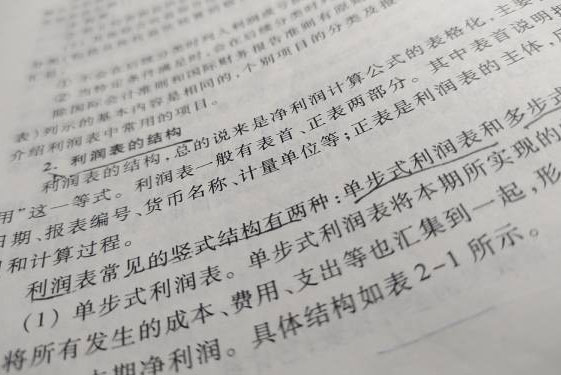 不会在后续分类时列入利润或亏
② 当特定条件满足时,会在后续分类时
除国际会计准则和国际财务报告准则有原
表)列示的基本内容是相同的,个别项目的分类及报
介绍利润表中常用的项目。
2. 利润表的结构
利润表的结构,总的说来是净利润计算公式的表格化,主要
用”这一等式。利润表一般有表首、正表两部分。其中表首说明扌
日期、报表编号、货币名称、计量单位等;正表是利润表的主体,
和计算过程。
利润表常见的竖式结构有两种:单步式利润表和多步式
(1) 单步式利润表。单步式利润表将本期所实现的
将所有发生的成本、费用、支出等也汇集到一起,形
期净利润。具体结构如表2-1 所示。